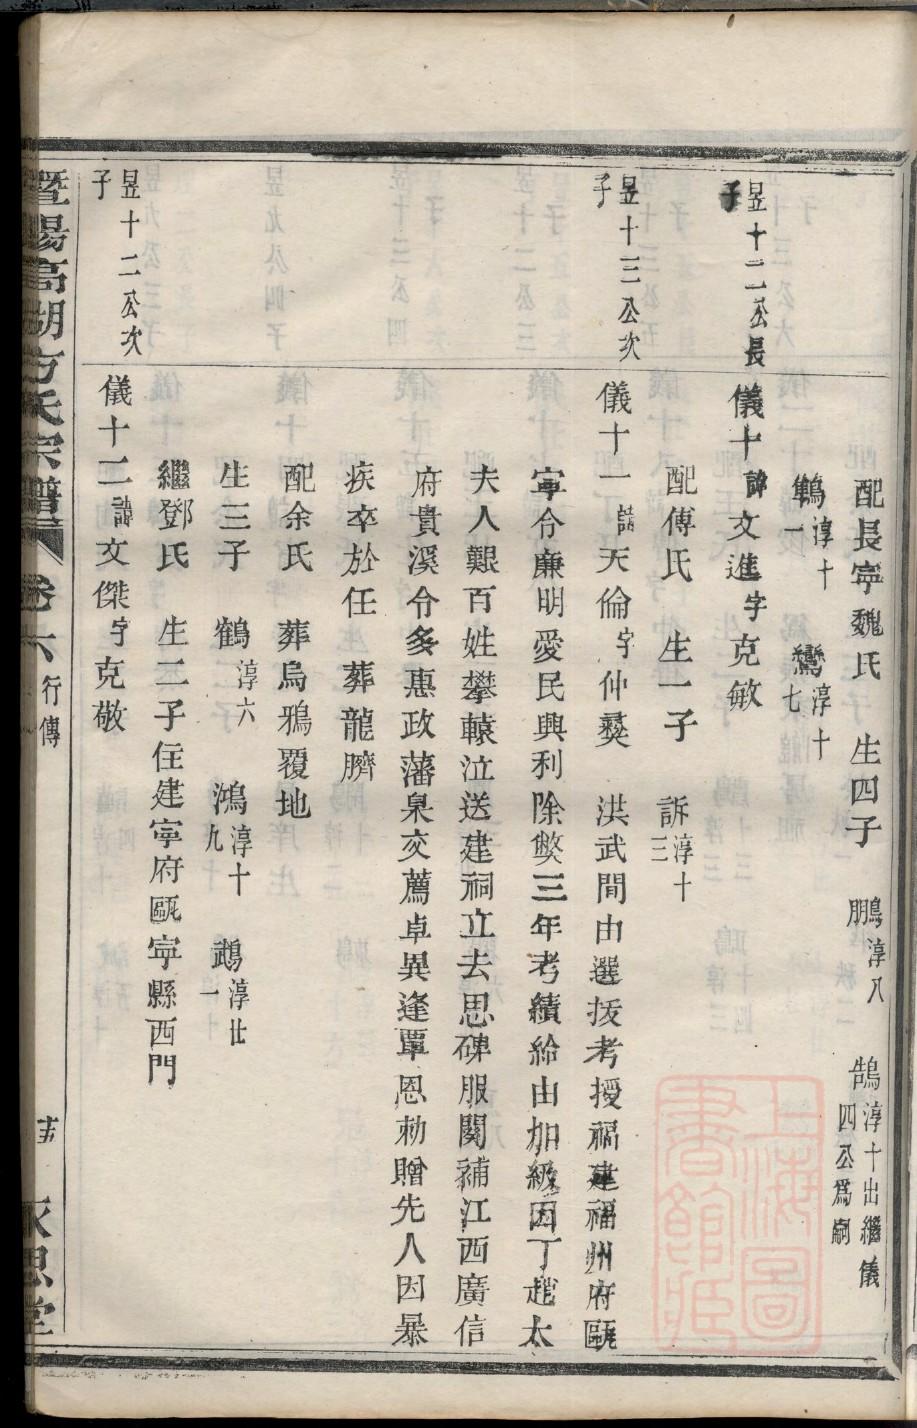 配長寧魏氏 生四子 鵬淳八 鵠淳十出繼儀四公爲嗣
鶽淳十一 鸞淳十七
昱十二公長子 儀十諱文進字克敏
配傅氏 生一子 訴淳十三
昱十三公次子 儀十一諱天倫字仲彝 洪武間由選拔考授福建福州府甌
寧令廉明愛民興利除獘三年考績給由加級因丁趙太
夫人艱百姓攀轅泣送建祠立去思碑服闋補江西廣信
府貴溪令多惠政藩臬交薦卓異逢覃恩勅贈先人因暴
疾卒於任 葬龍臍
配余氏 葬烏鴉覆地
生三子 鶴淳六 鴻淳十九 鵡淳廿一
繼鄧氏 生二子住建寧府甌寧縣西門
昱十二公次子 儀十二諱文傑字克敬
暨陽高湖方氏宗譜 卷六 行傳 永思堂
上海圖書館藏